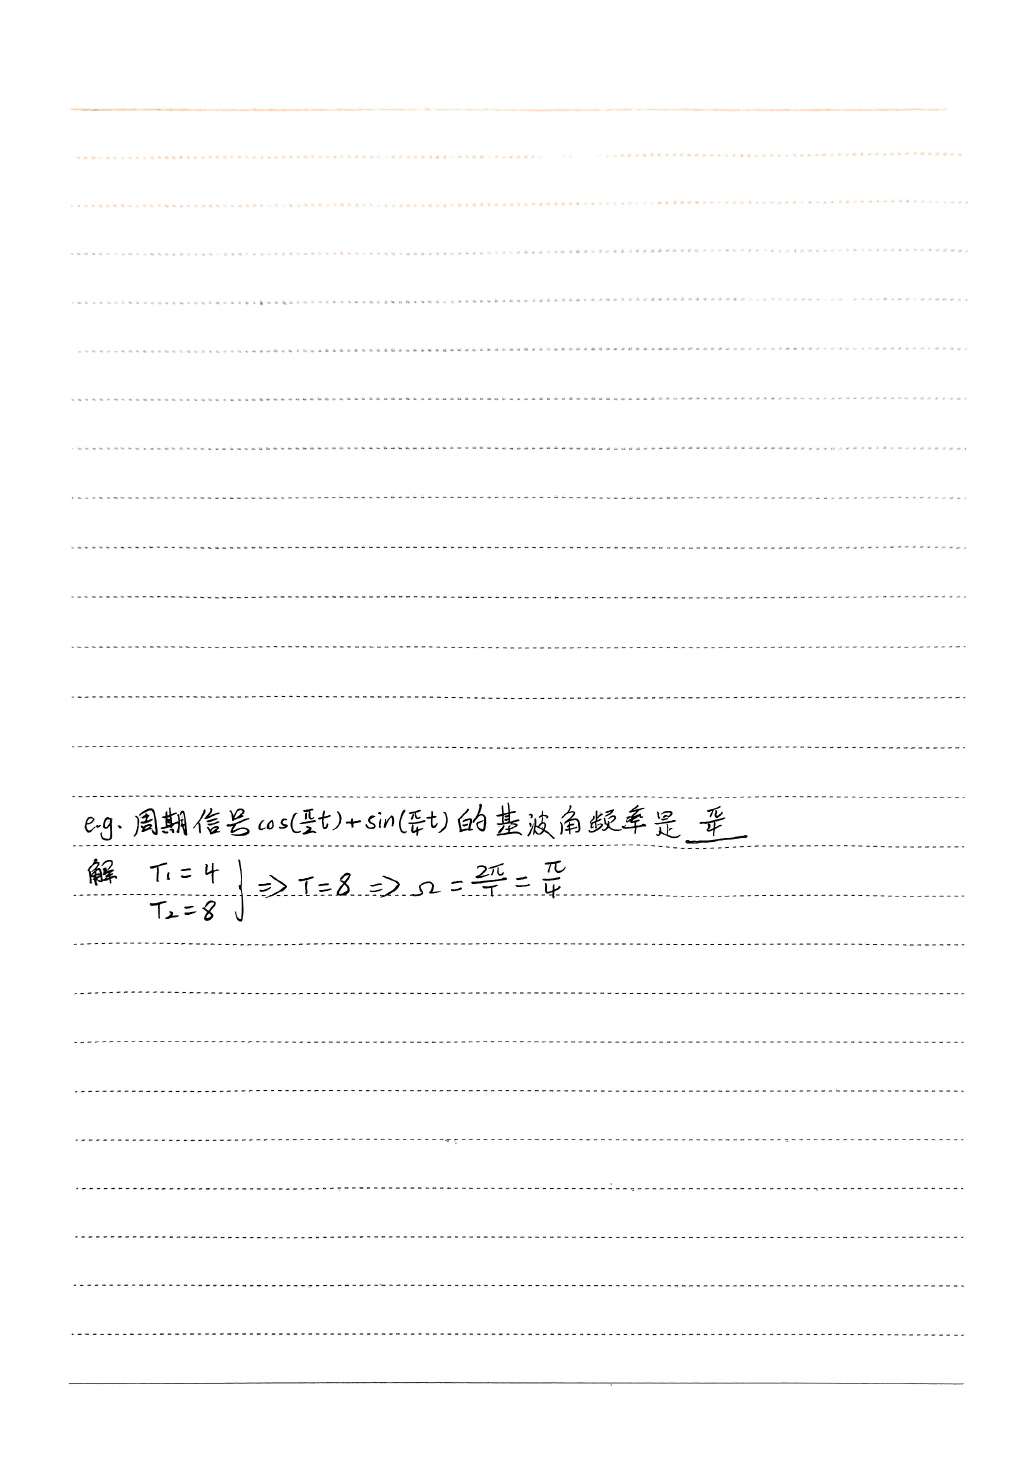 e.g. 周期信号cos(π/2 t)+sin(π/4 t)的基波角频率是 π/4
解 T₁=4
T₂=8 } ⇒ T=8 ⇒ Ω = 2π/T = π/4